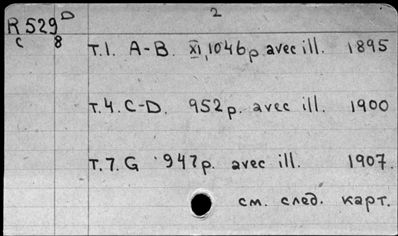 2
R 529 D
c 8
т.1. A-B. XI, 1046p avec ill. 1895
т.4. C-D. 952p. avec ill. 1900
т.7. G 947p. avec ill. 1907.
см. след. карт.